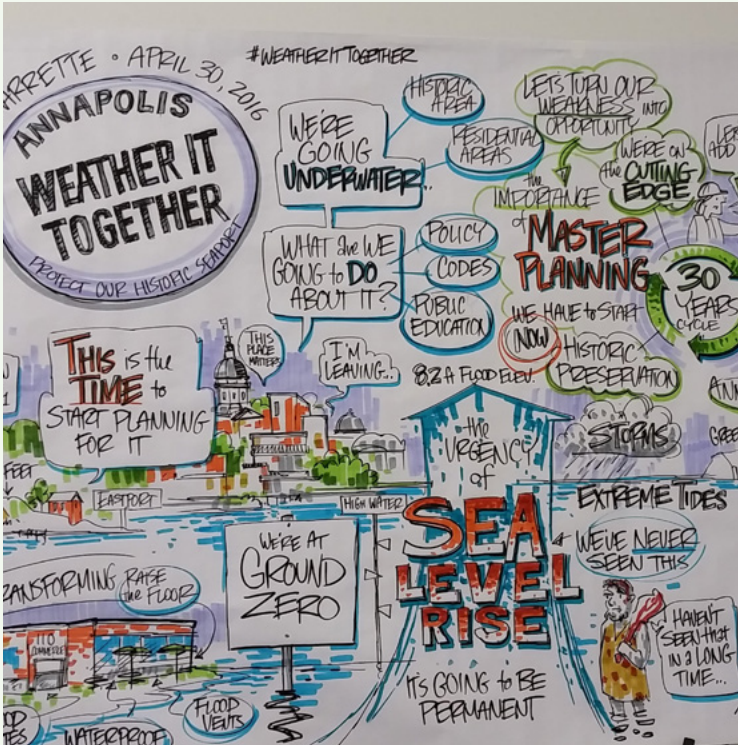 APRIL 30, 2016
#WEATHERITTOGETHER
ANNAPOLIS
WEATHER IT
TOGETHER
PROTECT OUR HISTORIC SEAPORT
WE'RE
GOING
UNDERWATER..
HISTORIC
AREA
RESIDENTIAL
AREAS
WHAT are WE
GOING to DO
ABOUT IT?
POLICY
CODES
PUBLIC
EDUCATION
LET'S TURN OUR
WEAKNESS INTO
OPPORTUNITY
WE'RE ON
the CUTTING
EDGE
ADD
the
IMPORTANCE
of
MASTER
PLANNING
30
YEARS
CYCLE
WE HAVE to START
NOW
HISTORIC
PRESERVATION
THIS is the
TIME to
START PLANNING
FOR IT
THIS
PLACE
MATTERS
I'M
LEAVING..!
8.2 ft FLOOD ELEV.
the
URGENCY
of
SEA
LEVEL
RISE
IT'S GOING to BE
PERMANENT
STORMS
EXTREME TIDES
WE'VE NEVER
SEEN THIS
HAVEN'T
SEEN that
IN a LONG
TIME...
FEET
EASTPORT
HIGH WATER
WE'RE AT
GROUND
ZERO
RAISE
the FLOOR
110
COMMERCE
FLOOD
VENTS
WATERPROOF